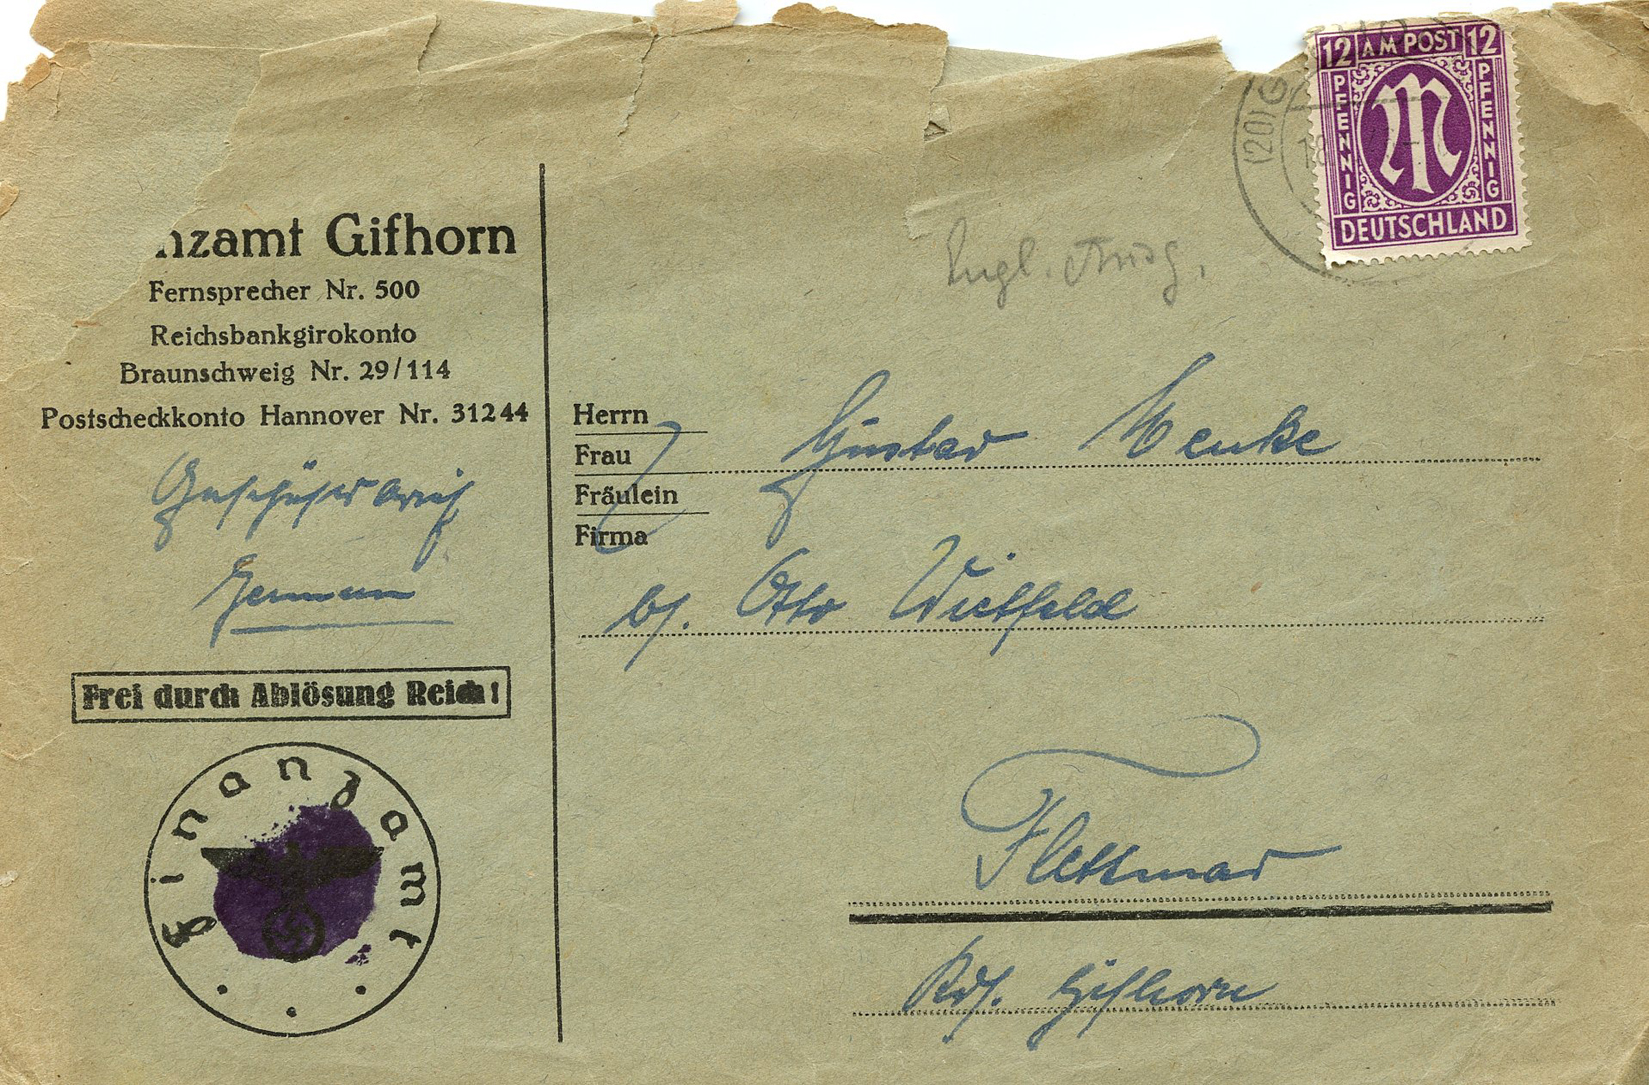 nzamt Gifhorn
Fernsprecher Nr. 500
Reichsbankgirokonto
Braunschweig Nr. 29/114
Postscheckkonto Hannover Nr. 31244
Frei durch Ablösung Reich!
Finanzamt
12 AM POST 12
PFENNIG PFENNIG
DEUTSCHLAND
(20) G
18
Engl. Ausg.
Herrn
Frau
Fräulein
Firma
Gustav Menke
b/. Otto Wietfeld
Flettmar
Krs. Gifhorn